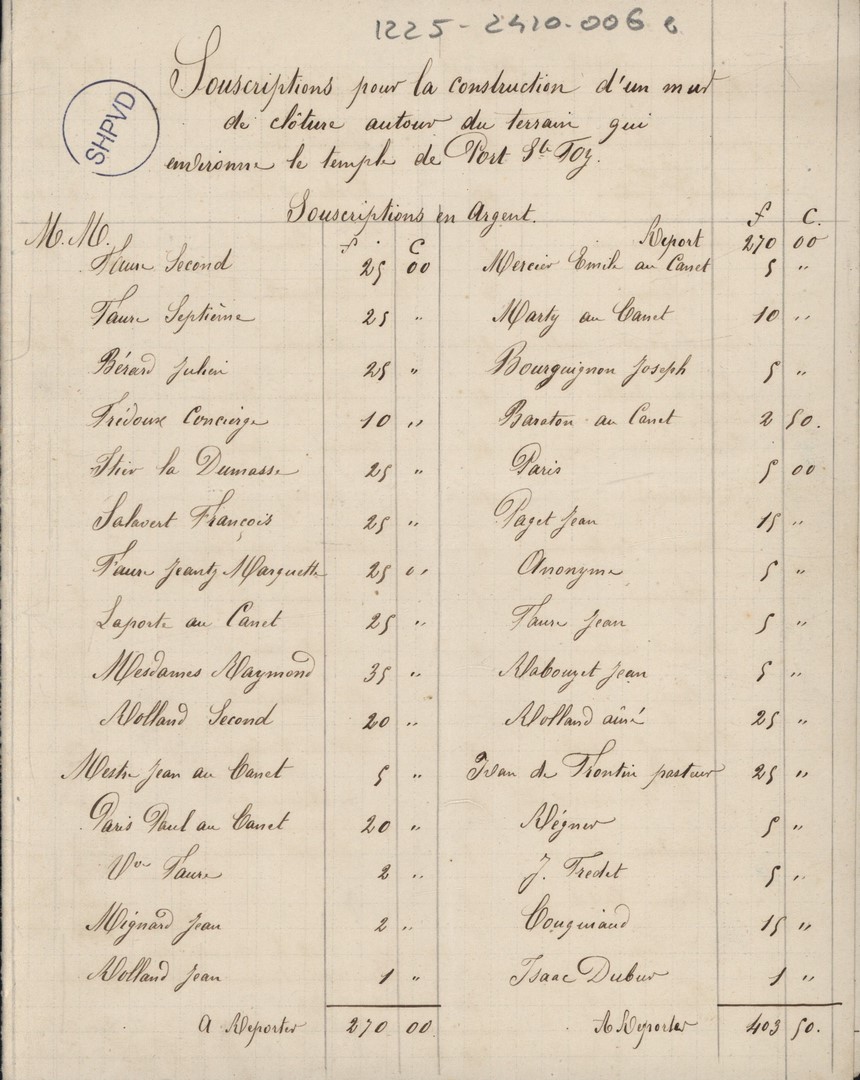 1225-2410-006 e
SHPVD
Souscriptions pour la construction d'un mur
de clôture autour du terrain qui
environne le temple de Port Ste Foy.
Souscriptions en Argent.
M. M. f. C
Faure Second 25 00
Faure Septième 25 "
Bérard Julien 25 "
Frédoux Concierge 10 "
la Dumasse 25 "
Salavert François 25 "
Faure Jeanty Marguette 25 0"
Laporte au Canet 25 "
Mesdames Raymond 35 "
Rolland Second 20 "
Mestre Jean au Canet 5 "
Paris Paul au Canet 20 "
Vve Faure 2 "
Mignard Jean 2 "
Rolland Jean 1 "
A Reporter 270 00
f C.
Report 270 00
Mercier Emile au Canet 5 "
Marty au Canet 10 "
Bourguignon Joseph 5 "
Baraton au Canet 2 50.
Paris 5 00
Paget Jean 15 "
Anonyme 5 "
Faure Jean 5 "
Rabouyet Jean 5 "
Rolland aîné 25 "
de Frontin pasteur 25 "
Régner 5 "
J. Fredet 5 "
Couguiaud 15 "
Isaac Dubur 1 "
A Reporter 403 50.